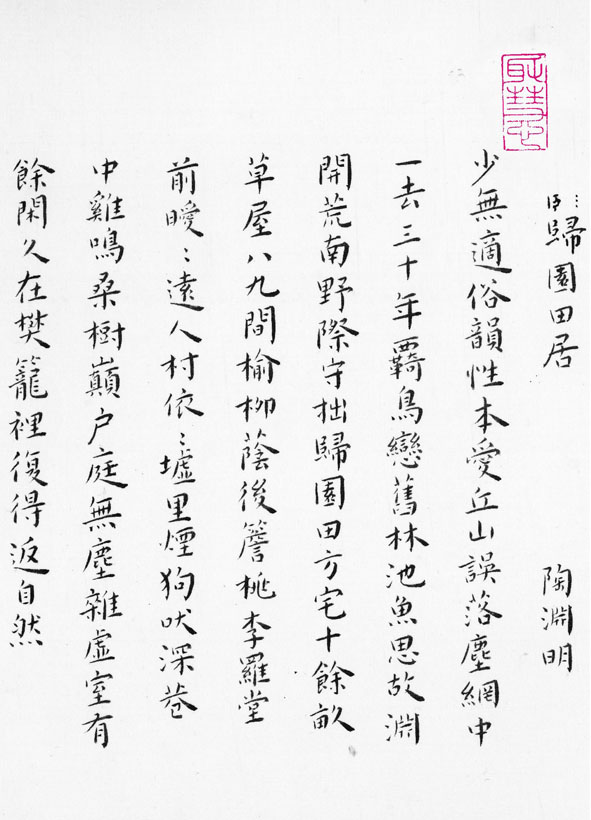 歸園田居 陶淵明
少無適俗韻性本愛丘山誤落塵網中
一去三十年覉鳥戀舊林池魚思故淵
開荒南野際守拙歸園田方宅十餘畝
草屋八九間榆柳蔭後簷桃李羅堂
前曖〻遠人村依〻墟里煙狗吠深巷
中雞鳴桑樹巔戶庭無塵雜虛室有
餘閑久在樊籠裡復得返自然